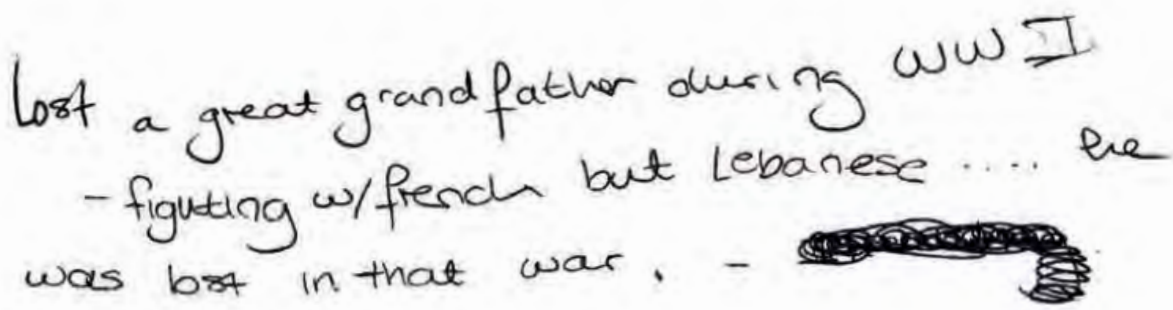 Lost a great grandfather during WW II
- figuting w/french but Lebanese .... he
was lost in that war. -